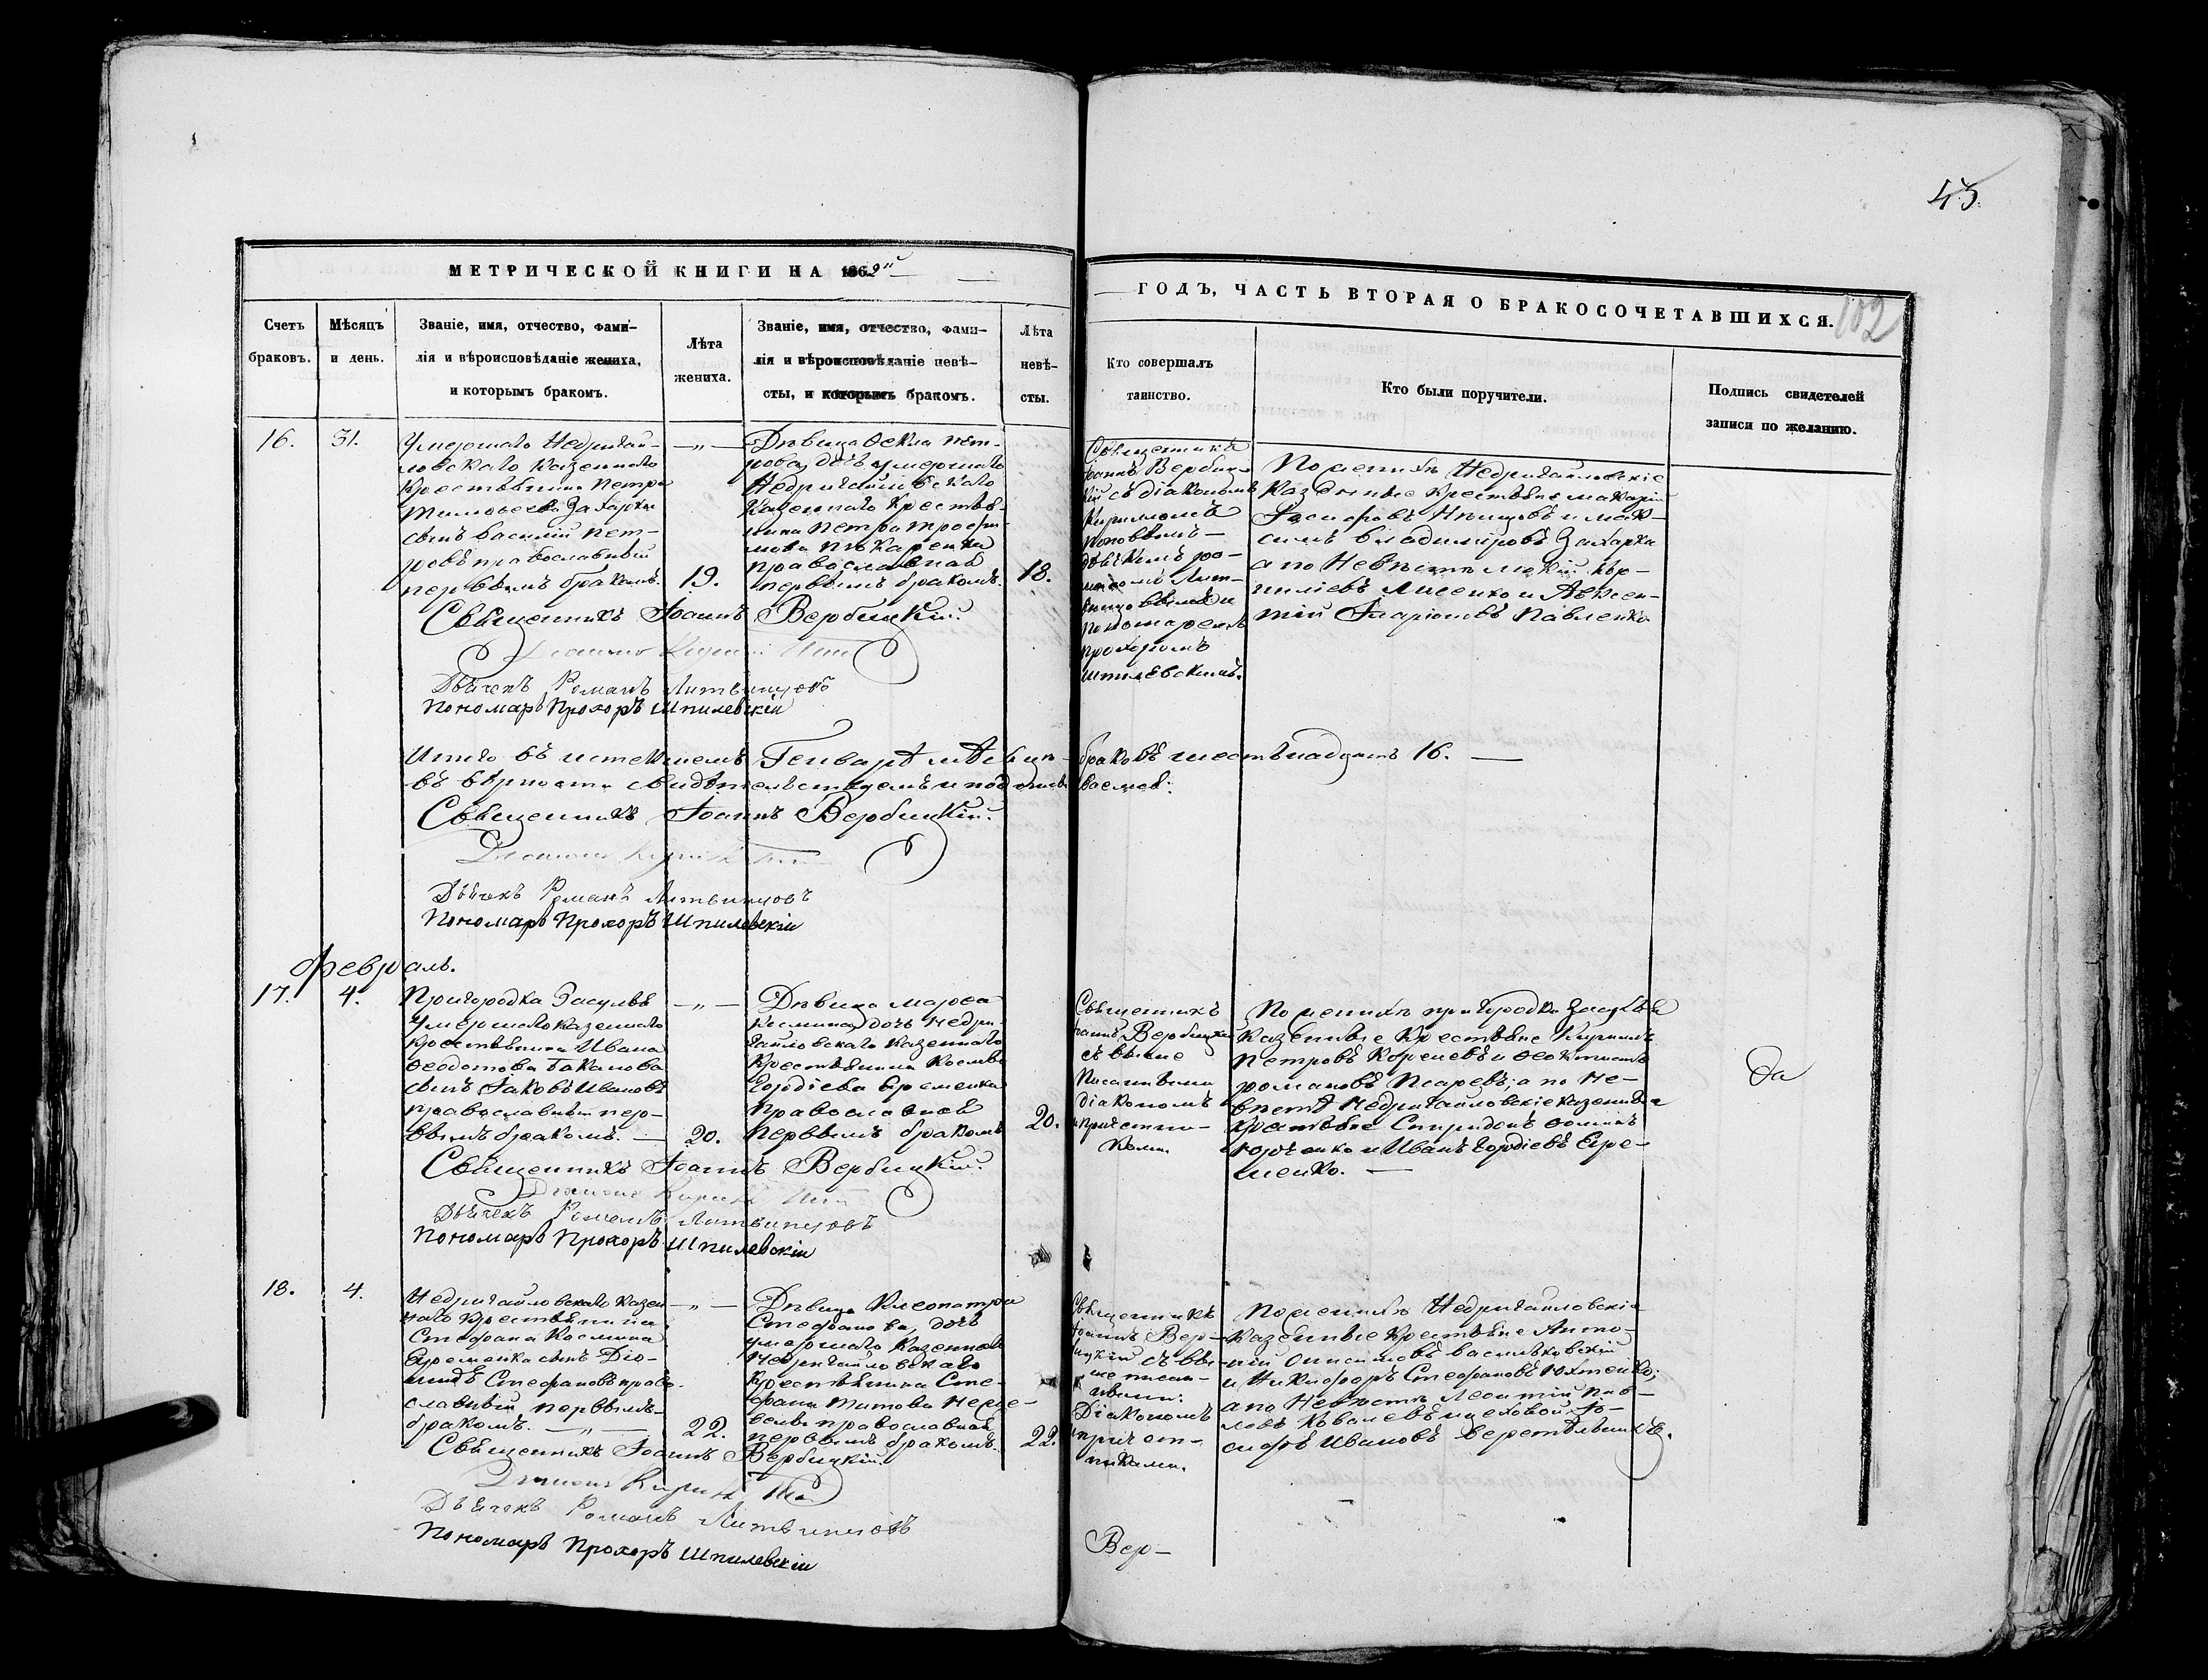 45.
102
МЕТРИЧЕСКОЙ КНИГИ НА 1862й
ГОДЪ, ЧАСТЬ ВТОРАЯ О БРАКОСОЧЕТАВШИХСЯ.
Счетъ браковъ.
Мѣсяцъ и день.
Званіе, имя, отчество, фами-
лія и вѣроисповѣданіе жениха,
и которымъ бракомъ.
Лѣта
жениха.
Званіе, имя, отчество, фами-
лія и вѣроисповѣданіе невѣ-
сты, и которымъ бракомъ.
Лѣта
невѣ-
сты.
Кто совершалъ
таинство.
Кто были поручители.
Подпись свидетелей
записи по желанію.
16.
31.
Умершаго Недригай-
ловскаго Казеннаго
Крестьянина Петра
Захарки
сынъ Василій Пет-
ровъ православный
первымъ бракомъ.
19.
Дѣвица Ѳекла Пет-
рова, дочь умершаго
Недригайловскаго
Казеннаго Крестья-
нина Петра Трофи-
мова Пекаренка
православная
первымъ бракомъ.
18.
Священникъ
Іоаннъ Вербиц-
кій съ діакономъ
Кирилломъ
Поповымъ
дьячкомъ Ро-
маномъ Лит-
винцовымъ и
пономаремъ
Прохоромъ
Шпилевскимъ.
По женихѣ Недригайловскіе
Казенные Крестьяне Макарій
и Мак-
симъ Владиміровъ Захарка
а по Невѣстѣ
Лисенко и Авксен-
тій Иларіоновъ Павленко
Священникъ Іоаннъ Вербицкій.
Діаконъ Кирилъ
Дьячекъ Романъ Литвинцовъ
Пономарь Прохоръ Шпилевскій
Итого въ истекшемъ Генварѣ мѣсяцѣ браковъ шестьнадцать 16.
въ вѣрности свидѣтельствуемъ и подписываемся:
Священникъ Іоаннъ Вербицкій.
Діаконъ Кирилъ
Дьячекъ Романъ Литвинцовъ
Пономарь Прохоръ Шпилевскій
Февраль.
17.
4.
Пригородка Засулья
умершаго казеннаго
крестьянина Ивана
Ѳеодотова Баканова
сынъ Іаковъ Ивановъ
православный пер-
вымъ бракомъ.
20.
Дѣвица Марѳа
Космина дочь Недри-
гайловскаго казеннаго
Крестьянина Космы
Гордіева Еременка
православная
первымъ бракомъ
20.
Священникъ
Іоаннъ Вербицкій
съ выше
писаннымъ
діакономъ
и причетни-
ками.
По женихѣ пригородка Засулья
Казенные Крестьяне Кирилъ
Петровъ Кореневъ и Ѳеоктистъ
Романовъ Псаревъ; а по Не-
вѣстѣ Недригайловскіе казенные
крестьяне Спиридонъ Ѳоминъ
и Иванъ Гордіевъ Ере-
менко.
Священникъ Іоаннъ Вербицкій.
Діаконъ Кирилъ
Дьячекъ Романъ Литвинцовъ
Пономарь Прохоръ Шпилевскій
18.
4.
Недригайловскаго казен-
наго Крестьянина
Стефана Космина
Еременка сынъ Діо-
мидъ Стефановъ право-
славный первымъ
бракомъ.
22.
Дѣвица Клеопатра
Стефанова, дочь
умершаго Казеннаго
Недригайловскаго
Крестьянина Сте-
фана Титова
православная
первымъ бракомъ.
22.
Священникъ
Іоаннъ Вер-
ицкій съ вы-
ше писан-
нымъ
Діакономъ
и причет-
никами.
По женихѣ Недригайловскіе
Казенные Крестьяне Анто-
ній Онисимовъ Васильковскій
и Никифоръ Стефановъ Юхменко;
а по Невѣстѣ Леонтій Пав-
ловъ Ковалевъ и цеховой Іо-
сифъ Ивановъ
Священникъ Іоаннъ Вербицкій.
Діаконъ Кирилъ
Дьячекъ Романъ Литвинцовъ
Пономарь Прохоръ Шпилевскій
Вер-